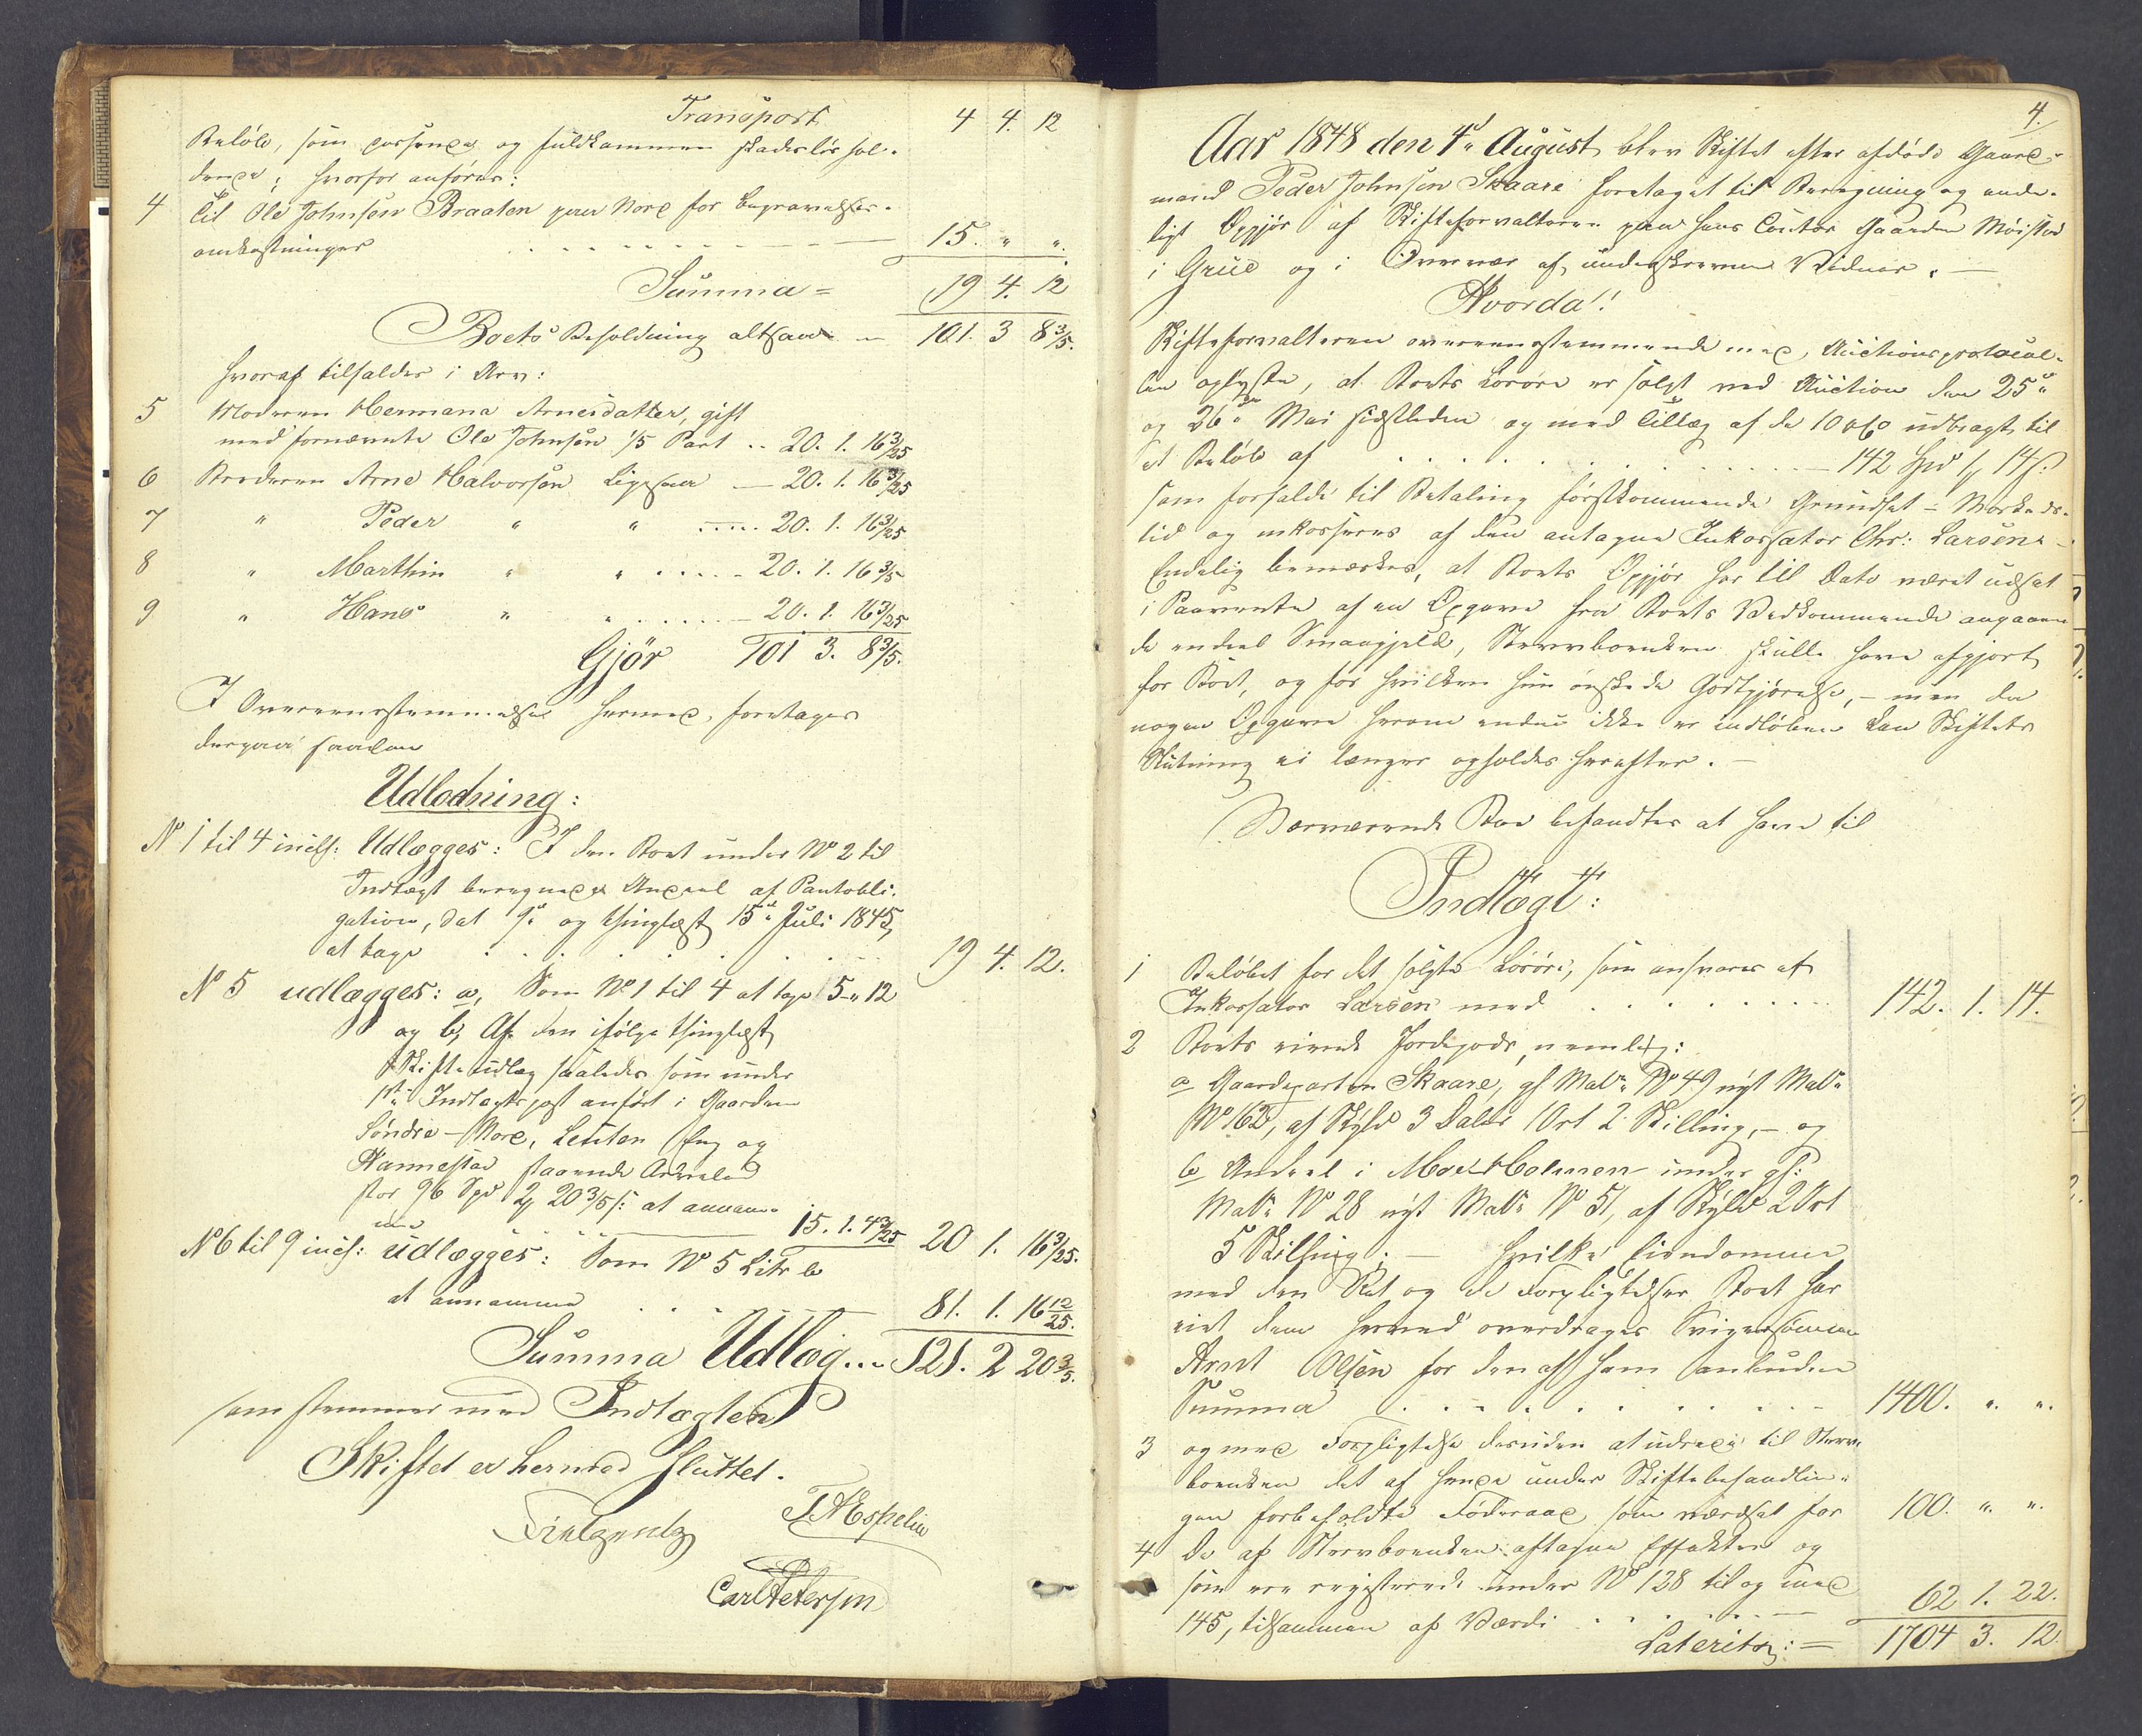 Transport 4 4. 12
Beløb, som passende og fuldkommen skadesløshol-
dende; hvorfor anføres:
4 til Ole Johnsen Braaten paa Nore for Begravelses-
omkostninger 15. " "
Summa = 19 4. 12
Boets Beholdning altsaa = 101. 3 8 3/5.
hvoraf tilfalder i Arv:
5 Moderen Hermana Arnesdatter, gift
med fornævnte Ole Johnsen 1/5 Part .. 20. 1. 16 3/25
6 Broderen Arne Halvorsen Ligesaa — 20. 1. 16 3/25
7 " Peder " " .... 20. 1. 16 3/25
8 " Marthin " " ..... 20. 1. 16 3/5
9 " Hans " " ...... 20. 1. 16 3/25
Gjør 101 3. 8 3/5.
I Overeensstemmelse hermed foretages
derpaa saadan
Udlodning:
No 1 til 4 incls: Udlægges: I den Boet under No 2 til
Indtægt beregnede Andeel af Pantobli-
gation, dat 9de og thinglæst 15de Juli 1845,
at tage 19 4. 12.
No 5 udlægges: a, Som No 1 til 4 at tage 5 " 12
og b, Af den ifølge thinglæst
Skifteudlæg saaledes som under
1ste Indtægtspost anført i Gaarden
Søndre-Nore, Eng og
staaende Arvelod
stor 96 Spd 2 20 3/5 s: at annam-
me 15. 1. 4 3/25 20 1. 16 3/25.
No 6 til 9 incl: udlægges: Som No 5 Litr b
at annamme 81. 1. 16 12/25.
Summa Udlæg... 121. 2 20 3/5.
som stemmer med Indtægten
Skiftet er hermed sluttet.
T. A. Espelin
Carl Petersen
4.
Aar 1848 den 4de August blev Skiftet efter afdøde Gaard-
mand Peder Johnsen Skaare foretaget til Beregning og ende-
ligt Opgjør af Skifteforvalteren paa hans Contor Gaarden Møistad
i Grue og i Overvær af underskrevne Vidner. —
Hvorda!
Skifteforvalteren overeensstemmende med Auctionsprotocol-
len oplyste, at Boets Løsøre er solgt ved Auction den 25de
og 26de Mai sidstleden og med Tillæg af de 10 pCt udbragt til
et Beløb af 142 Spd 1 14 s.
som forfalde til Betaling førstkommende Grundset-Markeds-
tid og inkasseres af den antagne Inkassator Chr: Larsen. —
Endelig bemærkes, at Boets Opgjør har til Dato været udsat
i Paavente af en Opgave fra Boets Vedkommende angaaen-
de endeel Smaagjæld, Stervboenken skulle have afgjort
for Boet, og for hvilken hun ønskede Godtgjørelse, — men da
nogen Opgave herom endnu ikke er indløben kan Skiftets
Slutning ei længer opholdes herefter. —
Nærværende Boe befandtes at have til
Indtægt:
1 Beløbet for det solgte Løsøre, som ansvares af
Inkassator Larsen med 142. 1. 14.
2 Boets eiende Jordegods, nemlig:
a Gaardeparten Skaare, gl Matr No 49 nyt Matr
No 162, af Skyld 3 Daler 1 Ort 2 Skilling, — og
b Andeel i Moe-Holmen under gl:
Matr No 28 nyt Matr No 51, af Skyld 2 Ort
5 Skilling; — hvilke Eiendomme
med den Ret og de Forpligtelser Boet har
eiet dem herved overdrages Svigersønnen
Arnt Olsen for den af ham anbudne
Summa 1400. " "
3 og med Forpligtelse desuden at udrede til Sterv-
boenken det af hende under Skiftebehandlin-
gen forbeholdte Føderaad, som værdsat for 100. " "
4 De af Stervboenken aftagne Effekter og
som ere registrerede under No 128 til og med
145, tilsammen af Værdi 62 1. 22.
Lateritz: = 1704 3. 12.